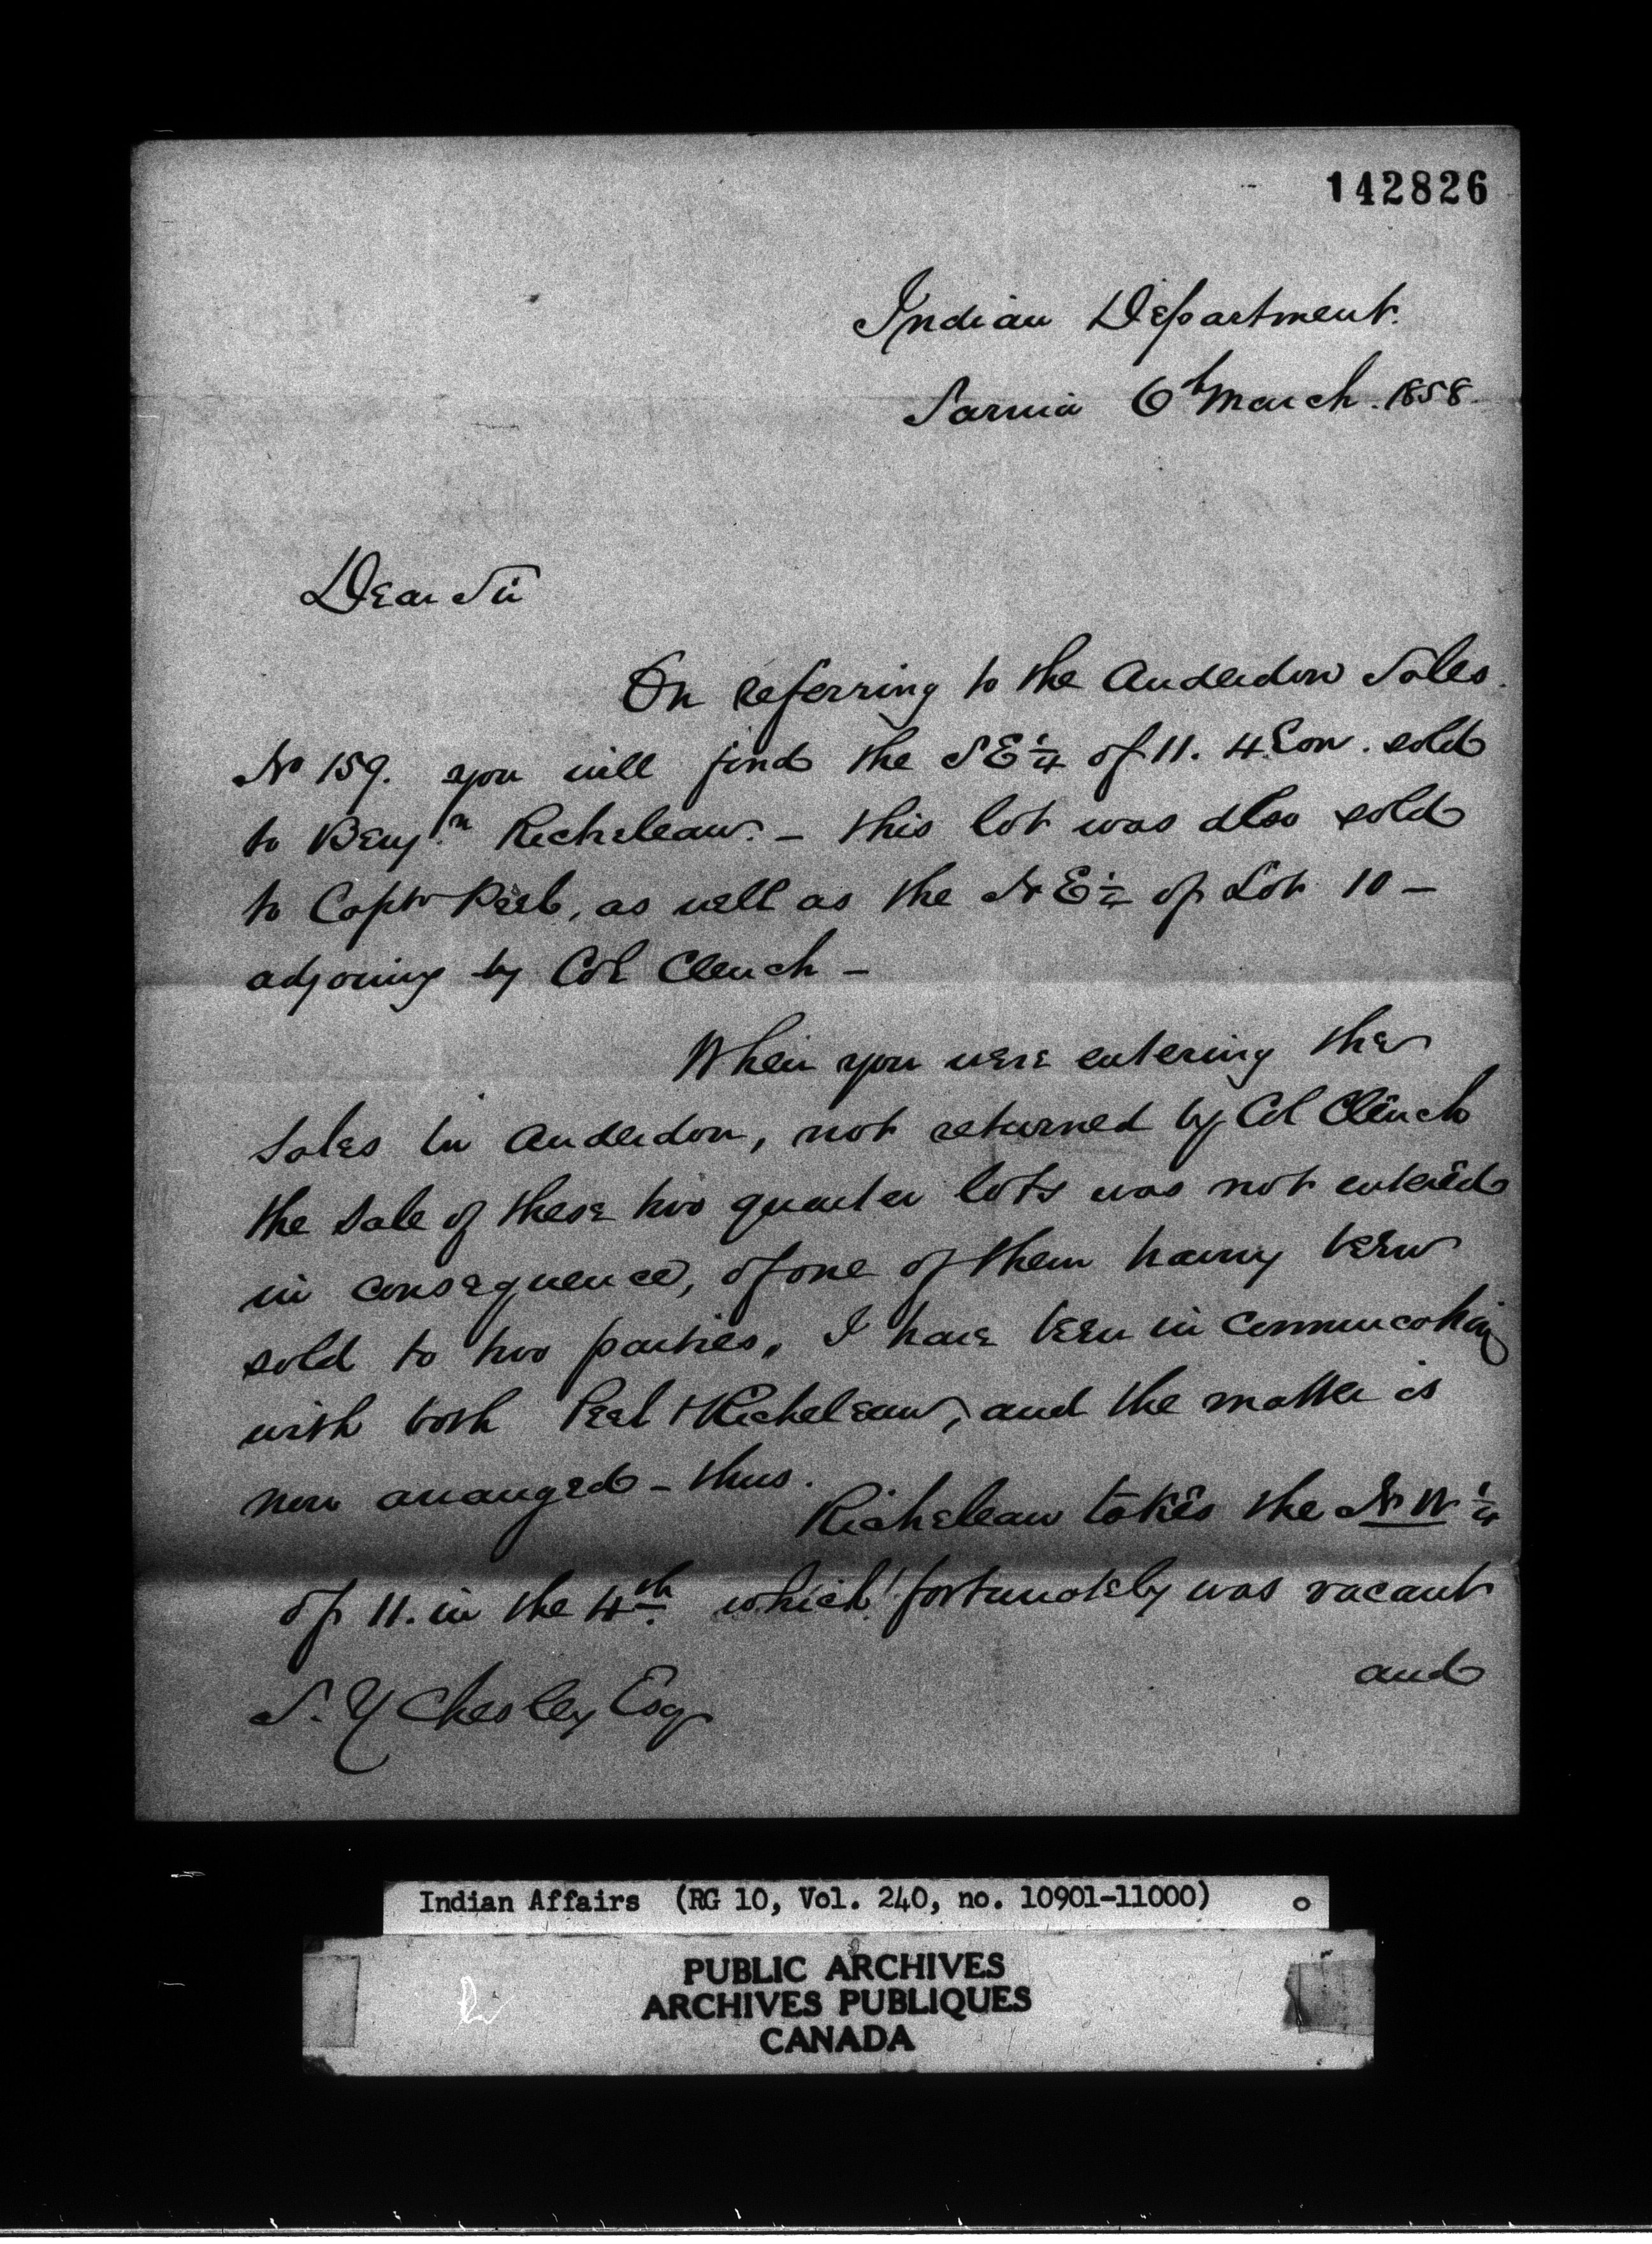 142826
Indian Department.
Sarnia 6th March. 1858.
Dear Sir
On referring to the Anderdon Sales.
No 159. you will find the S E 1/4 of 11. 4 Con. sold
to Benjn Richeleau. - this lot was also sold
to Captn Peel, as well as the N E 1/4 of Lot 10 -
adjoining by Col Clench -
When you were entering the
sales in Anderdon, not returned by Col Clench
the sale of these two quarter lots was not entered
in consequence, of one of them having been
sold to two parties, I have been in communication
with both Peel + Richeleau, and the matter is
now arranged - thus.
Richeleau takes the N W 1/4
of 11. in the 4th which! fortunately was vacant
and
S. Y Chesley Esq
Indian Affairs (RG 10, Vol. 240, no. 10901-11000)
PUBLIC ARCHIVES
ARCHIVES PUBLIQUES
CANADA